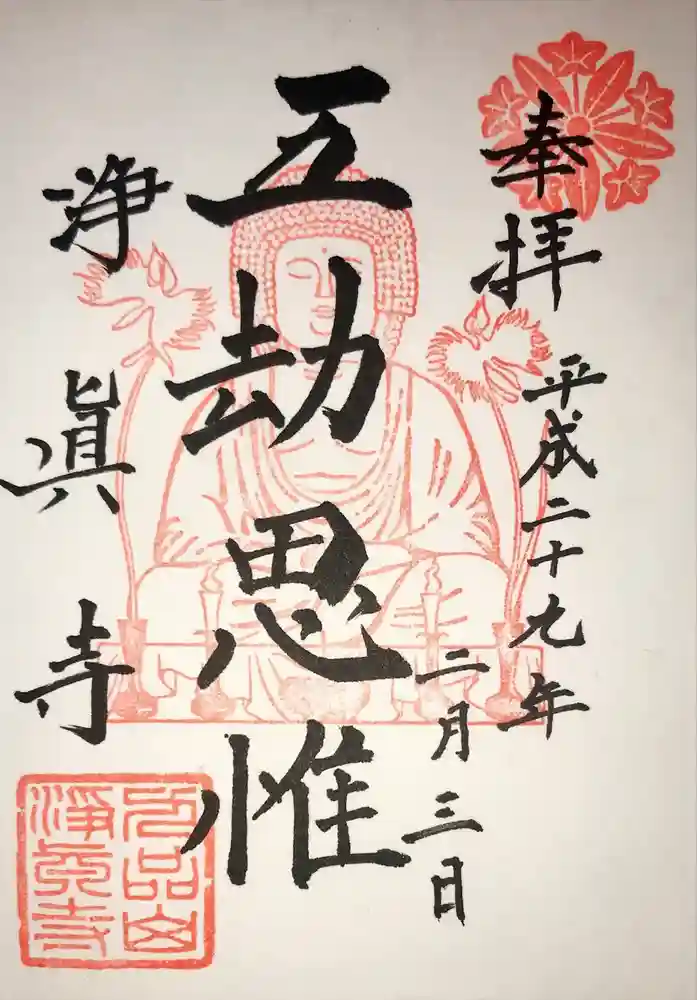 奉拝
平成二十九年
二月三日
五劫思惟
浄眞寺
九品山
浄真寺